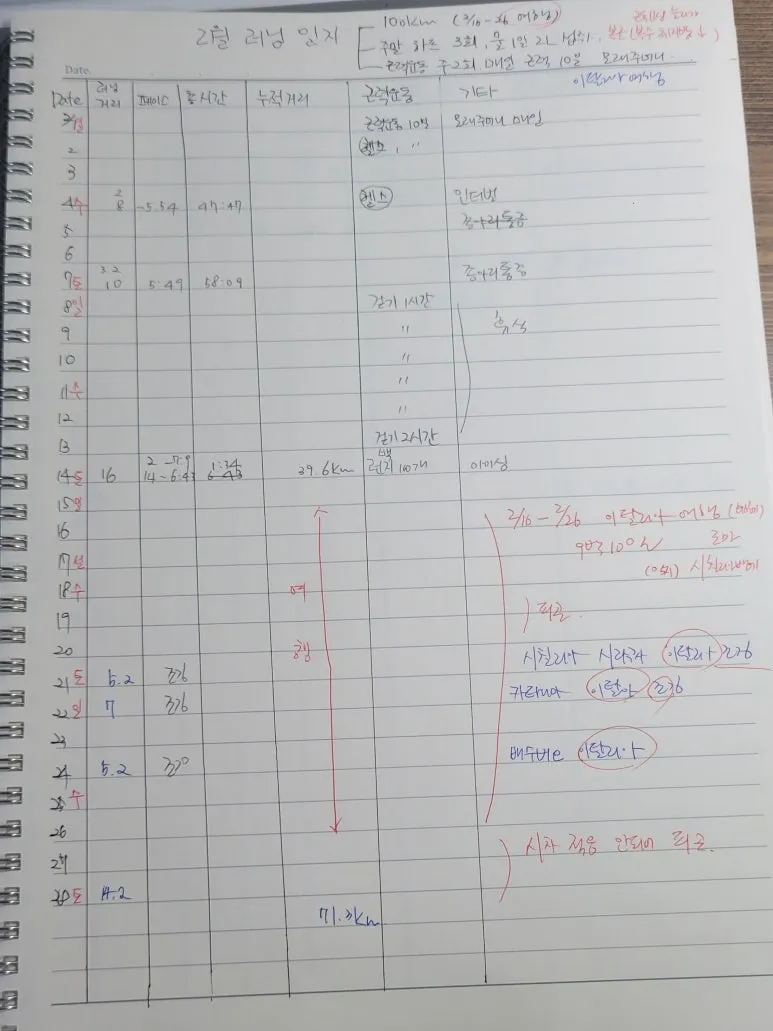 2월 러닝 일지
100km (2/10-26 여행)
주말 하프 3회, 물 1일 2L 섭취.
근력운동 주2회 매일 근력 10일 모래주머니.
이탈리아 여행
Date.
Date 러닝 거리 페이스 총시간 누적거리 근력운동 기타
2/1일 근력운동 10분 모래주머니 매일
2 헬스, "
3
4수 2 8 -5:54 47:47 헬스 인터벌
5 종아리통증
6
7토 3.2 10 5:49 58:09 종아리통증
8일 걷기 1시간
9 " 휴식
10 "
11수 "
12 "
13 걷기 2시간
14토 16 2 -7:9 14-6:43 1:34 6:43 39.6km 런지 100개
15일
16 2/16-2/26 이탈리아 여행
9박 10일 로마
17설 시칠리아
18수 여
19 피곤
20 행 시칠리아 시라쿠사 이탈리아 조깅
21토 5.2 조깅
22일 7 조깅 카타니아 이탈리아 조깅
23
24 5.2 조깅 이탈리아
25수
26
27 시차 적응 안되어 피곤.
28토 14.2
71.3km